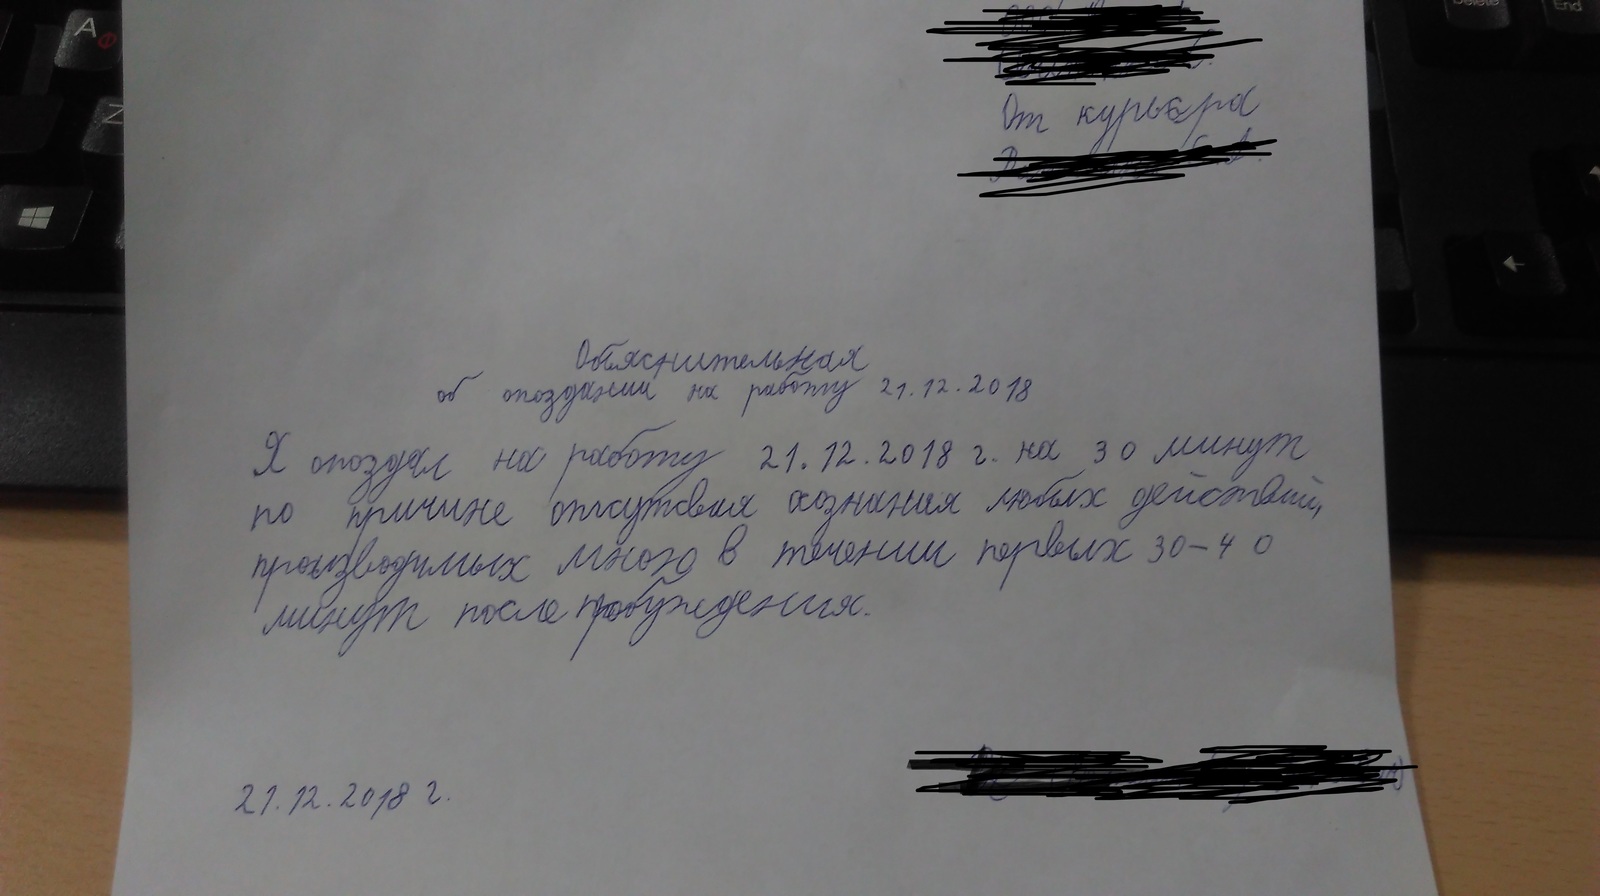 От курьера
Объяснительная
об опоздании на работу 21.12.2018
Я опоздал на работу 21.12.2018 г. на 30 минут
по причине отсутсвия осознания любых действий,
производимых мною в течении первых 30-40
минут после пробуждения.
21.12.2018 г.
A Ф
Z
Delete
End